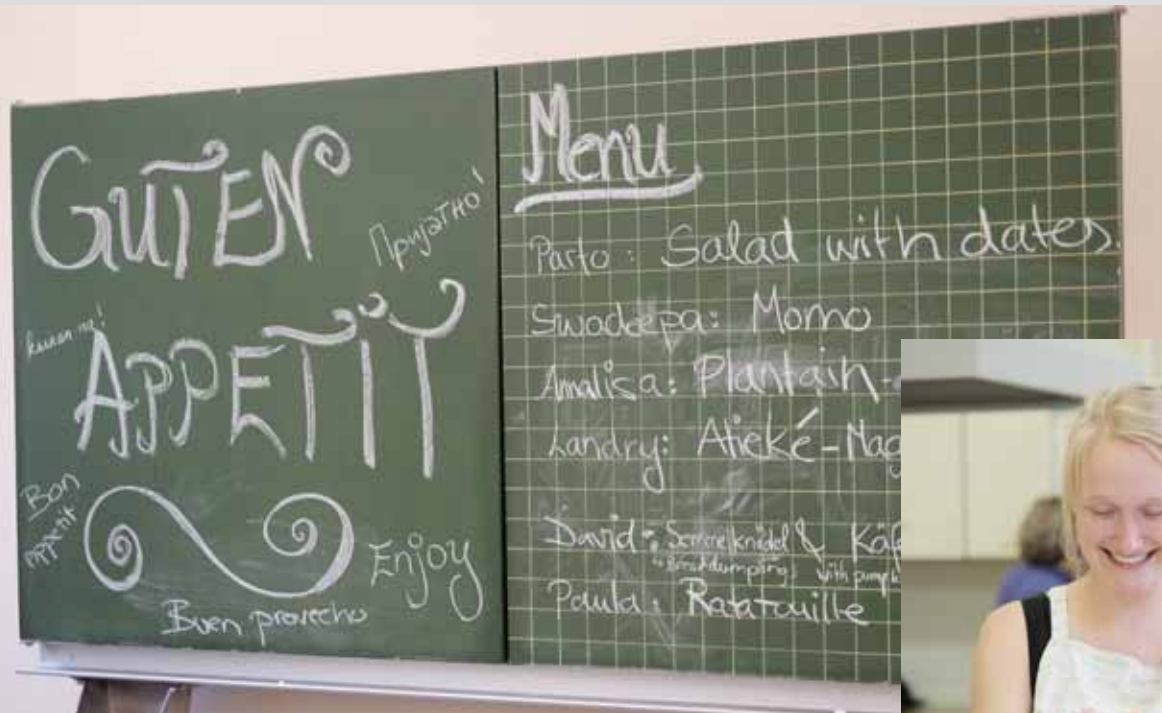 GUTEN
Пријатно!
APPETIT
Bon
appetit
Enjoy
Buen provecho
Menu
Parto: Salad with dates.
Swadeepa: Momo
Amalisa: Plantain-
Landry: Atieké-
David: Semmelknödel &
with
Paula: Ratatouille